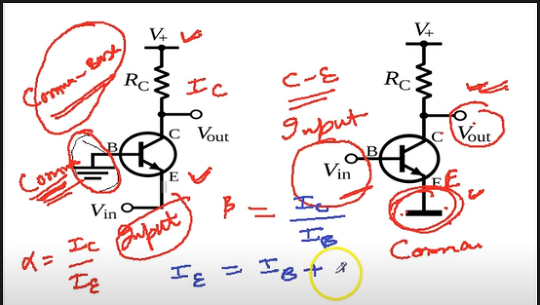 V+
Common-Base
RC
IC
C
Vout
B
Comm
E
Vin
Input
α = IC / IE
C-E
Input
V+
RC
C
Vout
B
Vin
E
E
Common
β = IC / IB
IE = IB +